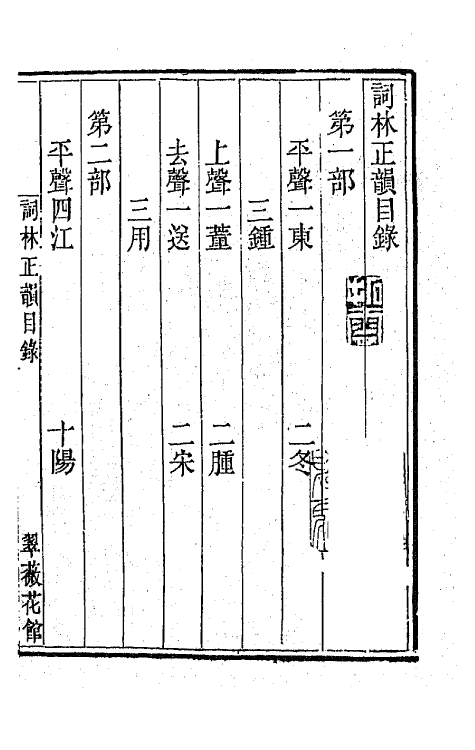 詞林正韻目錄
第一部
平聲一東　二冬
三鍾
上聲一董　二腫
去聲一送　二宋
三用
第二部
平聲四江　十陽
詞林正韻目錄　翠薇花館